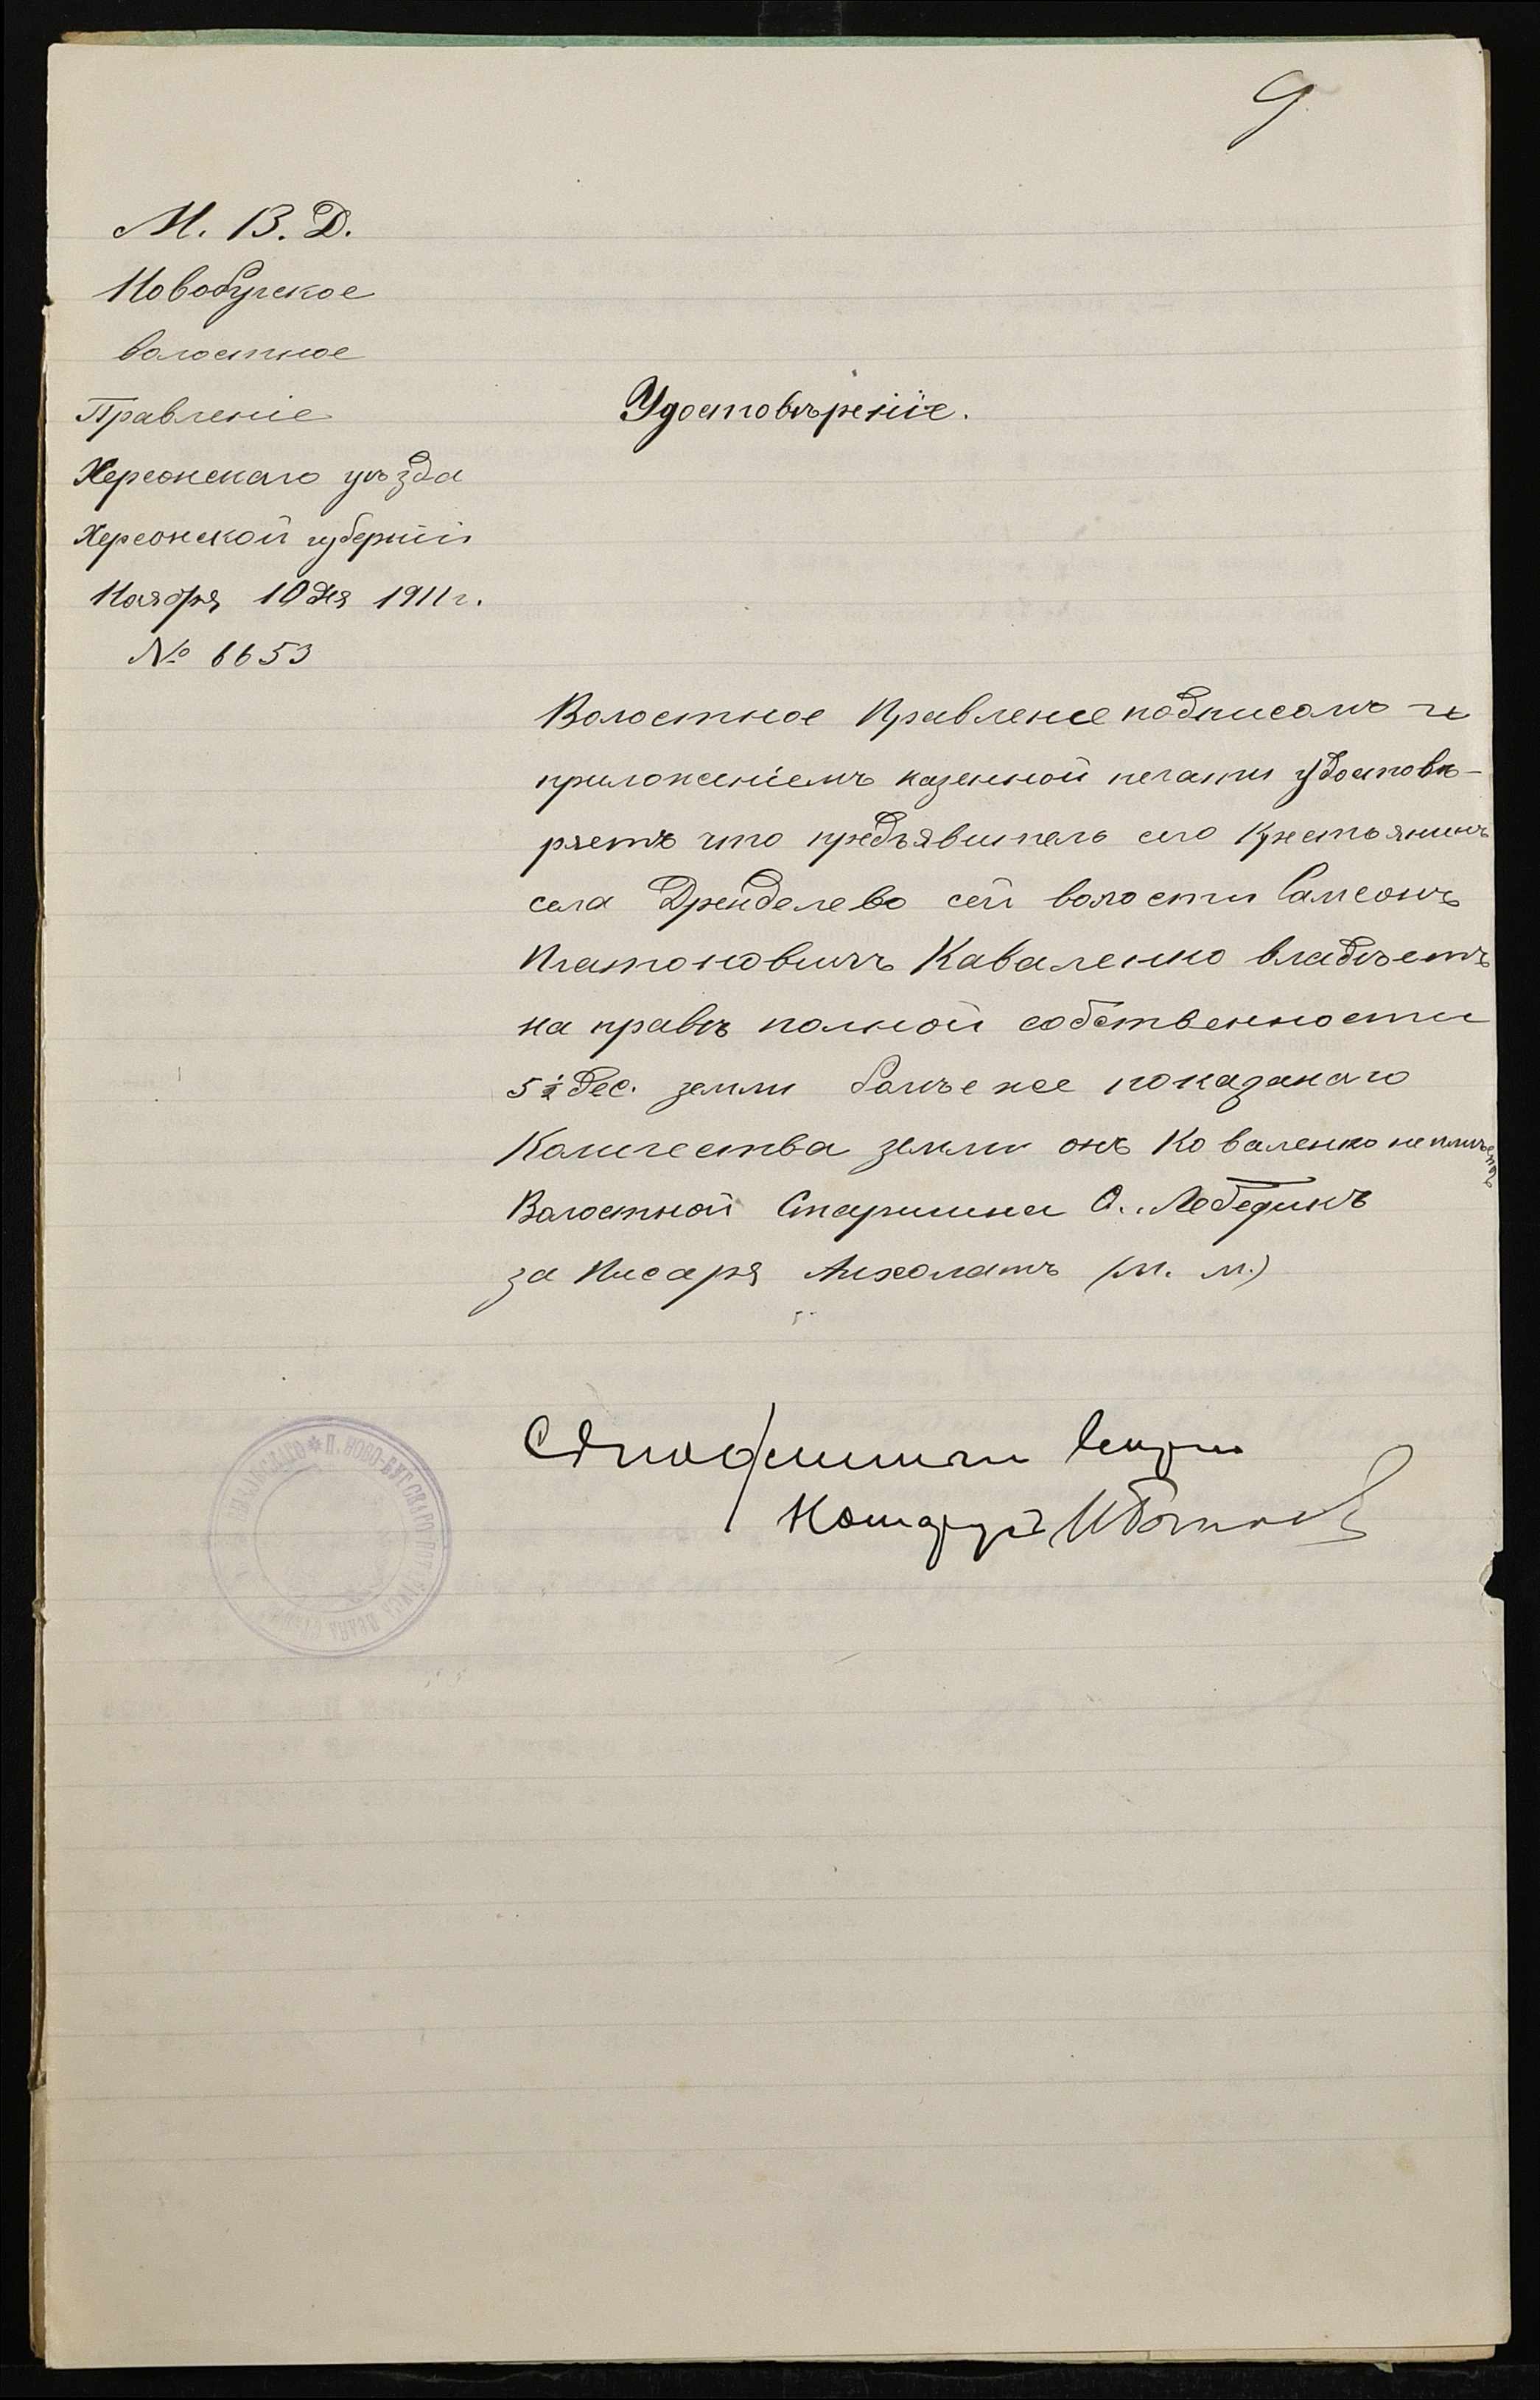 9
М. В. Д.
Новобугское
волостное
Правленіе
Херсонскаго уѣзда
Херсонской губерніи
Ноября 10 дня 1911 г.
№ 6653
Удостовѣреніе.
Волостное Правленіе подписомъ и
приложеніемъ казенной печати удостовѣ-
ряетъ что предъявитель сего Крестьянинъ
села Дренделево сей волости Самсонъ
Платоновичъ Каваленко владѣетъ
на правѣ полной собственности
5½ дес. земли болѣе же показанаго
Количества земли онъ Коваленко не имѣетъ
Волостной Старшина О. Лебединъ
за Писаря (м. п.)
Съ подлиннымъ вѣрно
Нотаріусъ